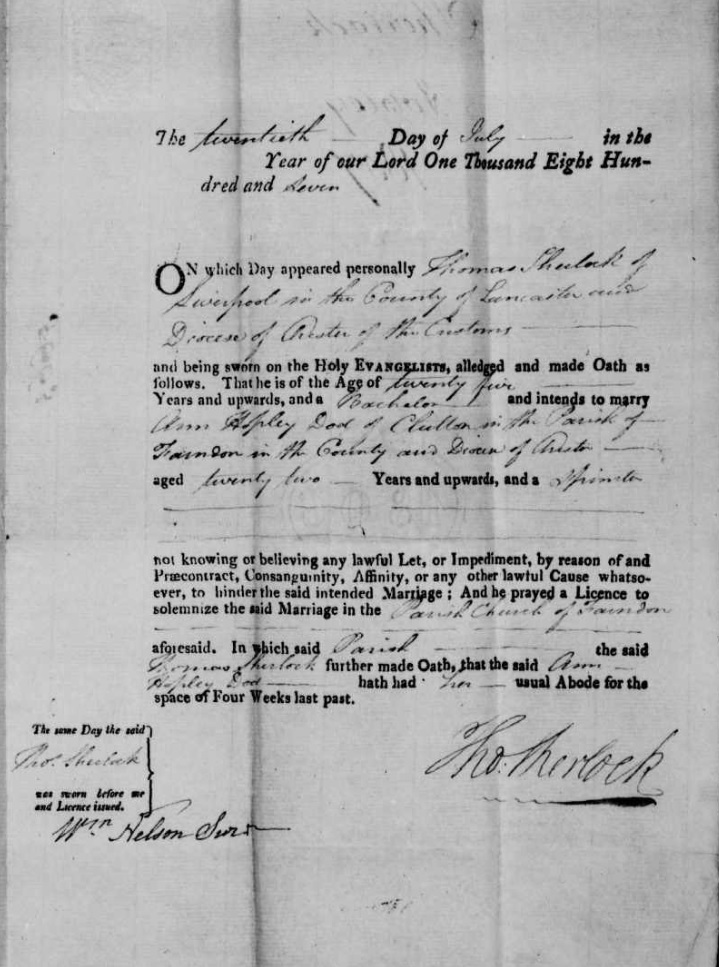 The twentieth Day of July in the
Year of our Lord One Thousand Eight Hun-
dred and Seven
ON which Day appeared personally Thomas Sherlock of
Liverpool in the County of Lancaster and
Diocese of Chester of the Customs
and being sworn on the Holy EVANGELISTS, alledged and made Oath as
follows. That he is of the Age of twenty five
Years and upwards, and a Bachelor and intends to marry
Ann Hopley Dod of Clutton in the Parish of
Farndon in the County and Diocese of Chester
aged twenty two Years and upwards, and a Spinster
not knowing or believing any lawful Let, or Impediment, by reason of and
Præcontract, Consanguinity, Affinity, or any other lawful Cause whatso-
ever, to hinder the said intended Marriage; And he prayed a Licence to
solemnize the said Marriage in the Parish Church of Farndon
aforesaid. In which said Parish the said
Thomas Sherlock further made Oath, that the said Ann
Hopley Dod hath had her usual Abode for the
space of Four Weeks last past.
The same Day the said
Thos. Sherlock
was sworn before me
and Licence issued.
Wm Nelson Surr
Tho. Sherlock